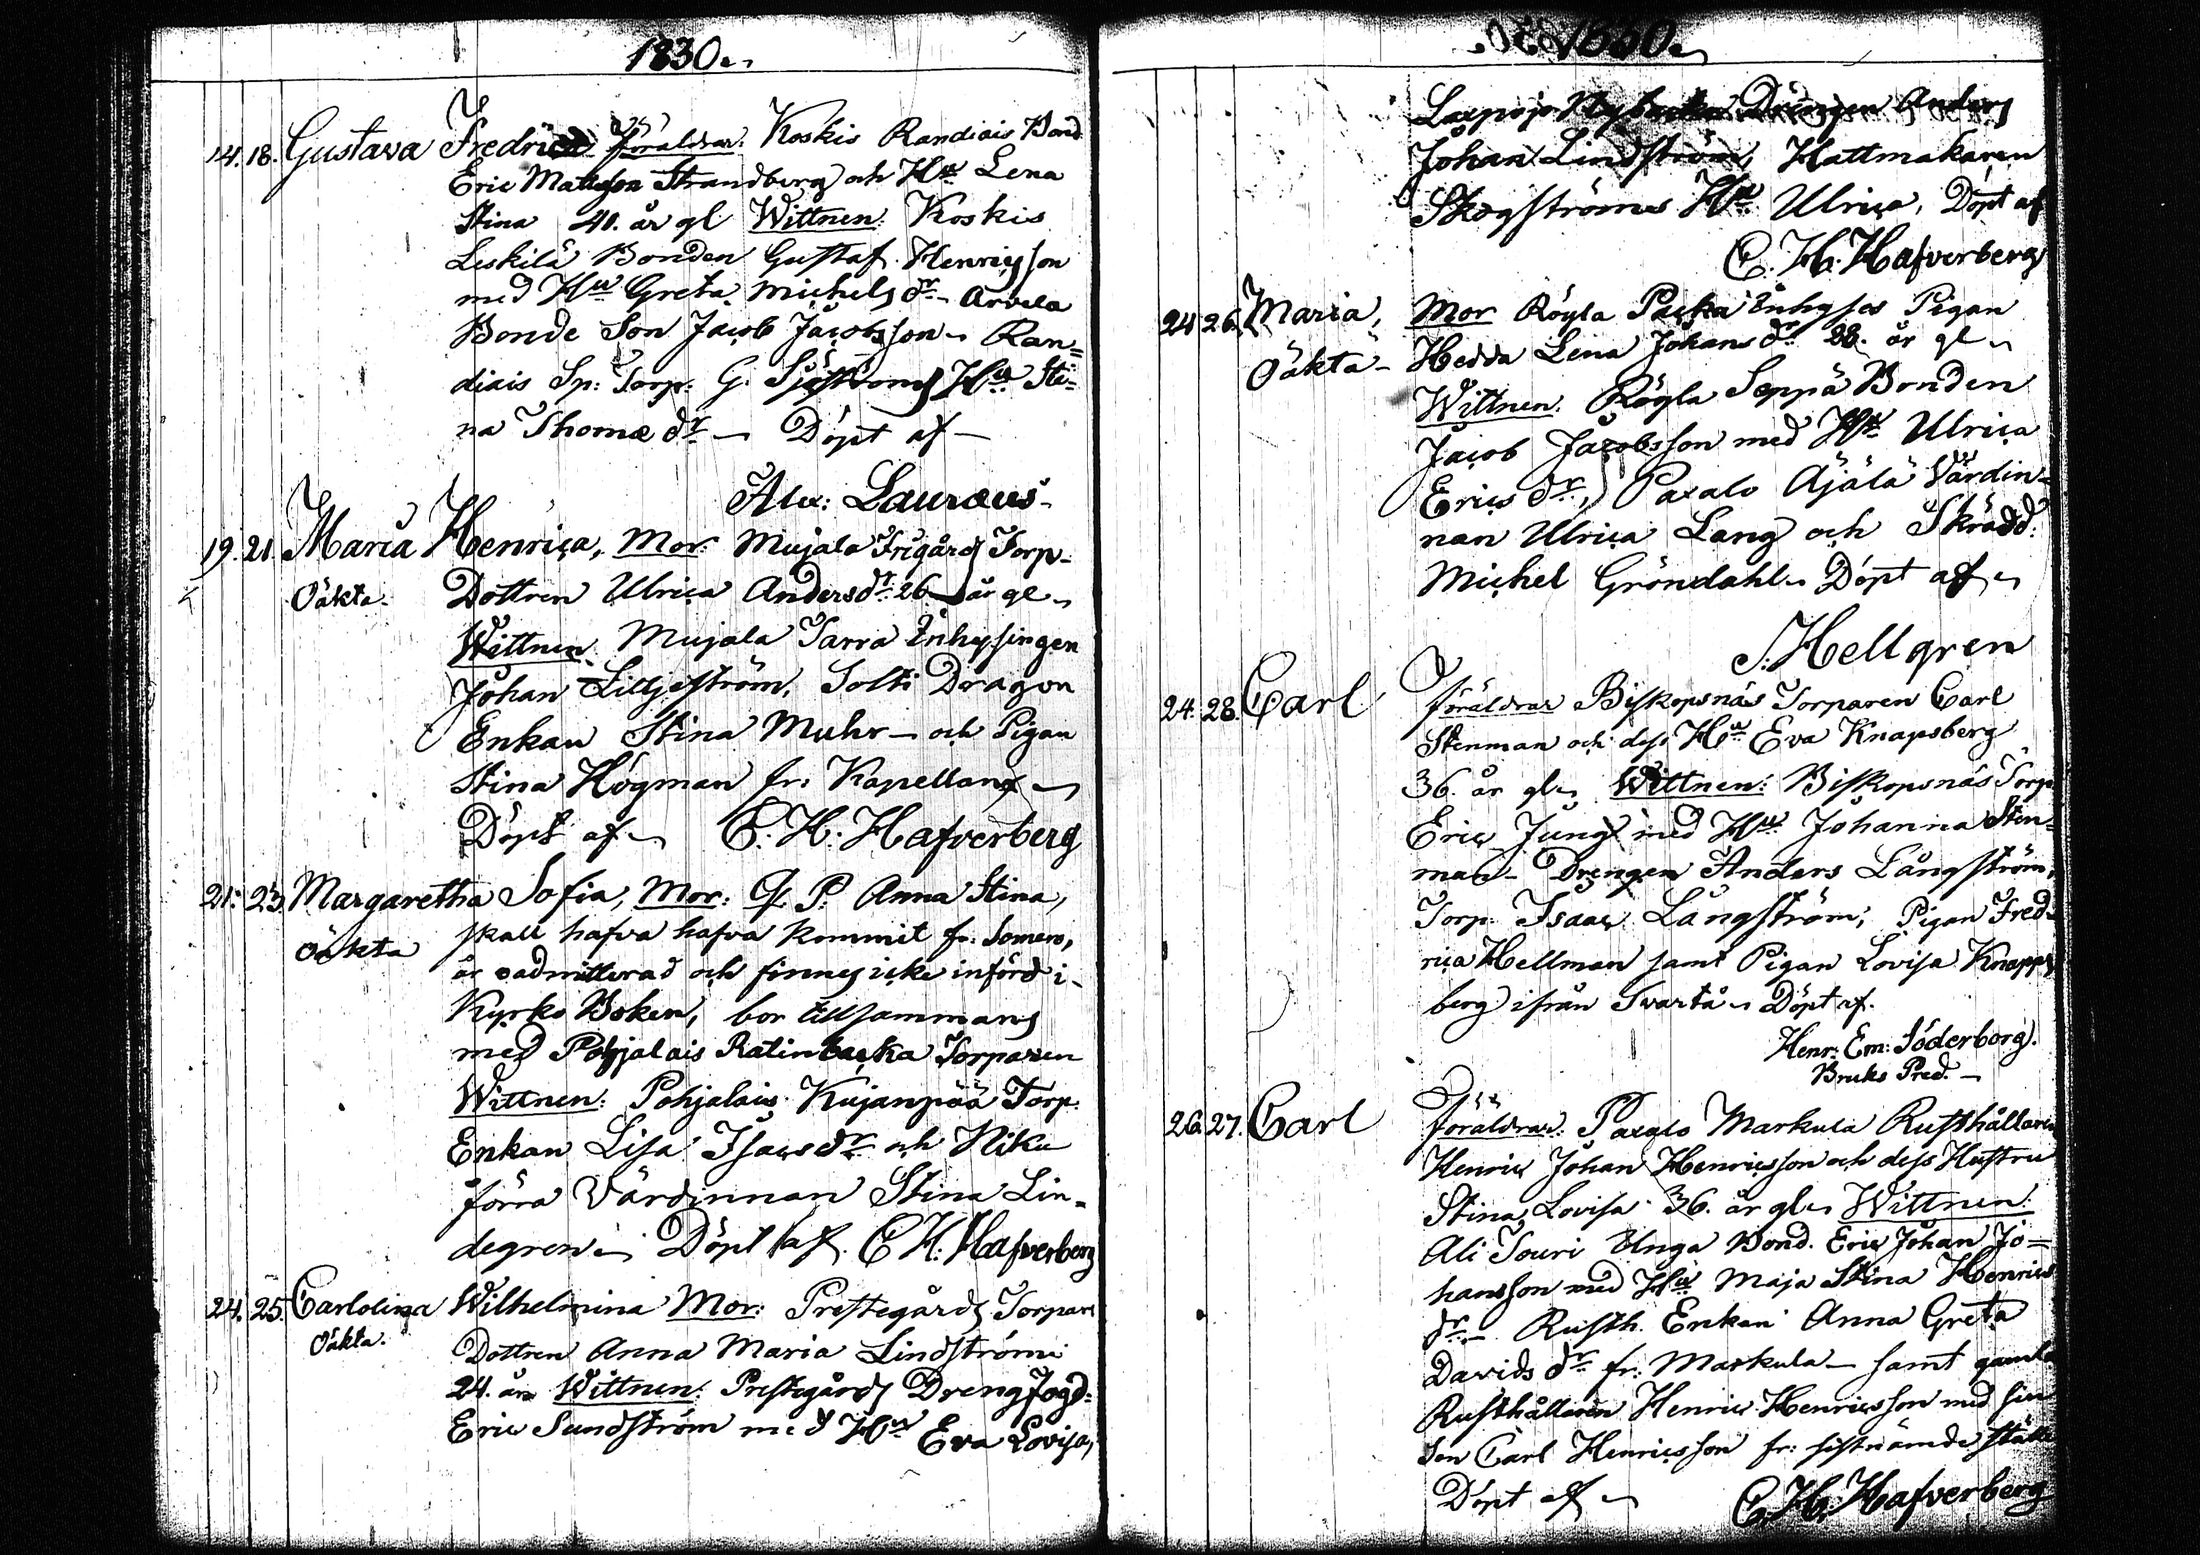 1830
14. 18. Gustava Fredrica Föräldrar: Koskis Randiais Bond
Eric Mattsson Strandberg och Hu Lena
Stina 40. år gl Wittnen: Koskis
Leskilä Bonden Gustaf Henricsson
med Hu Greta Michels dr Arvela
Bonde Son Jacob Jacobsson Ran=
diais Sp: Torp: G. Sjöströms Hu Sti=
na Thomæ dr Döpt af
Alex: Lauræus
19. 21. Maria Henrica, Mor: Mujala Frigårds Torp.
Oäkta. Dottren Ulrica Anders dr 26 år gl
Wittnen. Mujala Tarra Inhysingen
Johan Liljeström, Solti Dragon
Enkan Stina Muhr och Pigan
Stina Högman fr: Kapellans
Döpt af C. H. Hafverberg
21. 23. Margaretha Sofia, Mor: Q. P. Anna Stina,
Oäkta skall hafva hafva kommit fr: Somero,
är oadmitterad och finnes icke införd i
Kyrko Boken, bor tillsammans
med Pohjalais Ratinbacka Torparen
Wittnen: Pohjalais Kujanpää Torp.
Enkan Lisa Isacs dr och Niku
förra Värdinnan Stina Lin=
degren Döpt af C H. Hafverberg
24. 25. Carlolina Wilhelmina Mor: Prestegårds Torpare
Oäkta. Dottren Anna Maria Lindström
24. år Wittnen: Prestegårds Drengfogd:
Eric Sundström med Hu Eva Lovisa,
1830
Laxpojo Drängen Anders
Johan Lindström, Hattmakaren
Skogströms Hu Ulrica, Döpt af
C. H. Hafverberg
24 26. Maria, Mor Röyla Packa Inhyses Pigan
Oäkta Hedda Lena Johans dr 28. år gl
Wittnen. Röyla Seppä Bonden
Jacob Jacobsson med Hu Ulrica
Erics dr, Paxalo Äjälä Värdin=
nan Ulrica Lang och Skrädd:
Michel Gröndahl Döpt af
J. Hellgren
24. 28. Carl Föräldrar Biskopsnäs Torparen Carl
Stenman och dess Hu Eva Knapsberg
36. år gl Wittnen: Biskopsnäs Torp
Eric Jung med Hu Johanna Sten=
man Drengen Anders Långström,
Torp. Isaac Långström, Pigan Fred=
rica Hellman samt Pigan Lovisa Knapps
berg ifrån Svartå Döpt af.
Henr: Em: Söderborg.
Bruks Pred.
26. 27. Carl Föräldrar: Paxalo Markula Rusthållaren
Henric Johan Henricsson och dess Hustru
Stina Lovisa 36. år gl Wittnen:
Ali Souri Unga Bond. Eric Johan Jo=
hansson med Hu Maja Stina Henrics
dr Rusth. Enkan Anna Greta
Davids dr fr: Markula samt gamla
Rusthållaren Henric Henricsson med sin
Son Carl Henricsson fr: sistnämde ställe
Döpt af C. H. Hafverberg